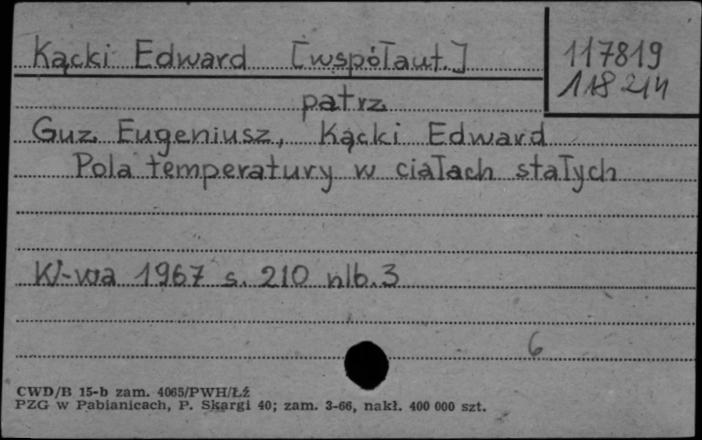 Kącki Edward [współaut.]
117819
118214
patrz
Guz Eugeniusz, Kącki Edward
Pola temperatury w ciałach stałych
W-wa 1967 s. 210 nlb. 3
6
CWD/B 15-b zam. 4065/PWH/Łź
PZG w Pabianicach, P. Skargi 40; zam. 3-66, nakł. 400 000 szt.